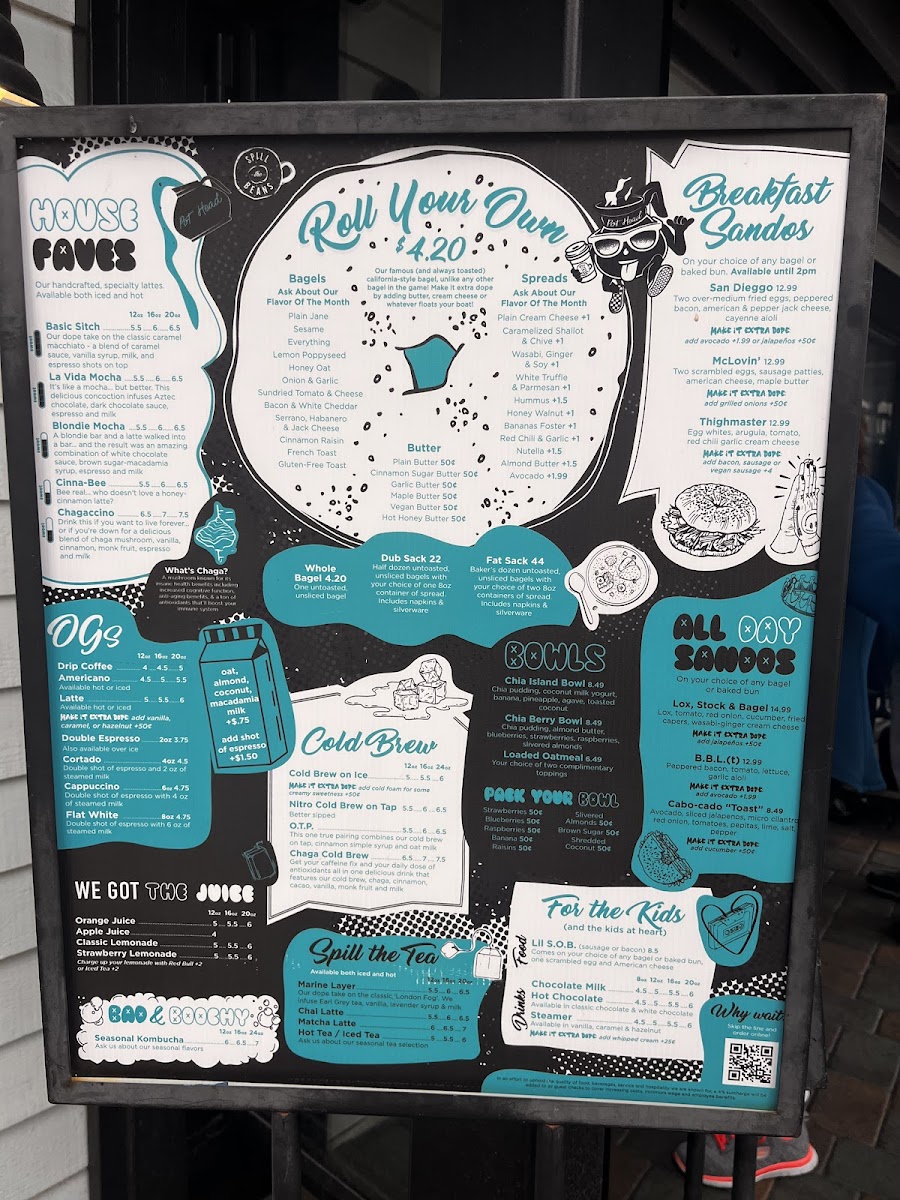 SPILL the BEANS
Pot Head
HOUSE
FAVES
Our handcrafted, specialty lattes.
Available both iced and hot
12oz 16oz 20oz
Basic Sitch 5.5 6 6.5
Our dope take on the classic caramel
macchiato - a blend of caramel
sauce, vanilla syrup, milk, and
espresso shots on top
La Vida Mocha 5.5 6 6.5
It's like a mocha... but better. This
delicious concoction infuses Aztec
chocolate, dark chocolate sauce,
espresso and milk
Blondie Mocha 5.5 6 6.5
A blondie bar and a latte walked into
a bar... and the result was an amazing
combination of white chocolate
sauce, brown sugar-macadamia
syrup, espresso and milk
Cinna-Bee 5.5 6 6.5
Bee real... who doesn't love a honey-
cinnamon latte?
Chagaccino 6.5 7 7.5
Drink this if you want to live forever...
or if you're down for a delicious
blend of chaga mushroom, vanilla,
cinnamon, monk fruit, espresso
and milk
What's Chaga?
A mushroom known for its
insane health benefits including
increased cognitive function,
anti-aging benefits, & a ton of
antioxidants that'll boost your
immune system
Roll Your Own
$4.20
Our famous (and always toasted)
california-style bagel, unlike any other
bagel in the game! Make it extra dope
by adding butter, cream cheese or
whatever floats your boat!
Bagels
Ask About Our
Flavor Of The Month
Plain Jane
Sesame
Everything
Lemon Poppyseed
Honey Oat
Onion & Garlic
Sundried Tomato & Cheese
Bacon & White Cheddar
Serrano, Habanero
& Jack Cheese
Cinnamon Raisin
French Toast
Gluten-Free Toast
Spreads
Ask About Our
Flavor Of The Month
Plain Cream Cheese +1
Caramelized Shallot
& Chive +1
Wasabi, Ginger
& Soy +1
White Truffle
& Parmesan +1
Hummus +1.5
Honey Walnut +1
Bananas Foster +1
Red Chili & Garlic +1
Nutella +1.5
Almond Butter +1.5
Avocado +1.99
Butter
Plain Butter 50¢
Cinnamon Sugar Butter 50¢
Garlic Butter 50¢
Maple Butter 50¢
Vegan Butter 50¢
Hot Honey Butter 50¢
Whole
Bagel 4.20
One untoasted,
unsliced bagel
Dub Sack 22
Half dozen untoasted,
unsliced bagels with
your choice of one 8oz
container of spread.
Includes napkins &
silverware
Fat Sack 44
Baker's dozen untoasted,
unsliced bagels with
your choice of two 8oz
containers of spread.
Includes napkins &
silverware
Pot Head
Breakfast
Sandos
On your choice of any bagel or
baked bun. Available until 2pm
San Dieggo 12.99
Two over-medium fried eggs, peppered
bacon, american & pepper jack cheese,
cayenne aioli
MAKE IT EXTRA DOPE
add avocado +1.99 or jalapeños +50¢
McLovin' 12.99
Two scrambled eggs, sausage patties,
american cheese, maple butter
MAKE IT EXTRA DOPE
add grilled onions +50¢
Thighmaster 12.99
Egg whites, arugula, tomato,
red chili garlic cream cheese
MAKE IT EXTRA DOPE
add bacon, sausage or
vegan sausage +4
OGs
12oz 16oz 20oz
Drip Coffee 4 4.5 5
Americano 4.5 5 5.5
Available hot or iced
Latte 5 5.5 6
Available hot or iced
MAKE IT EXTRA DOPE add vanilla,
caramel, or hazelnut +50¢
Double Espresso 2oz 3.75
Also available over ice
Cortado 4oz 4.5
Double shot of espresso and 2 oz of
steamed milk
Cappuccino 6oz 4.75
Double shot of espresso with 4 oz
of steamed milk
Flat White 8oz 4.75
Double shot of espresso with 6 oz of
steamed milk
oat,
almond,
coconut,
macadamia
milk
+$.75
add shot
of espresso
+$1.50
Cold Brew
12oz 16oz 24oz
Cold Brew on Ice 5 5.5 6
MAKE IT EXTRA DOPE add cold foam for some
creamy sweetness +50¢
Nitro Cold Brew on Tap 5.5 6 6.5
Better sipped
O.T.P. 5.5 6 6.5
This one true pairing combines our cold brew
on tap, cinnamon simple syrup and oat milk
Chaga Cold Brew 6.5 7 7.5
Get your caffeine fix and your daily dose of
antioxidants all in one delicious drink that
features our cold brew, chaga, cinnamon,
cacao, vanilla, monk fruit and milk
BOWLS
Chia Island Bowl 8.49
Chia pudding, coconut milk yogurt,
banana, pineapple, agave, toasted
coconut
Chia Berry Bowl 8.49
Chia pudding, almond butter,
blueberries, strawberries, raspberries,
slivered almonds
Loaded Oatmeal 6.49
Your choice of two complimentary
toppings
PACK YOUR BOWL
Strawberries 50¢
Blueberries 50¢
Raspberries 50¢
Banana 50¢
Raisins 50¢
Slivered
Almonds 50¢
Brown Sugar 50¢
Shredded
Coconut 50¢
ALL DAY
SANDOS
On your choice of any bagel
or baked bun
Lox, Stock & Bagel 14.99
Lox, tomato, red onion, cucumber, fried
capers, wasabi-ginger cream cheese
MAKE IT EXTRA DOPE
add jalapeños +50¢
B.B.L.(t) 12.99
Peppered bacon, tomato, lettuce,
garlic aioli
MAKE IT EXTRA DOPE
add avocado +1.99
Cabo-cado "Toast" 8.49
Avocado, sliced jalapeños, micro cilantro,
red onion, tomatoes, pepitas, lime, salt,
pepper
MAKE IT EXTRA DOPE
add cucumber +50¢
WE GOT THE JUICE
12oz 16oz 20oz
Orange Juice 5 5.5 6
Apple Juice 4
Classic Lemonade 5 5.5 6
Strawberry Lemonade 5 5.5 6
Charge up your lemonade with Red Bull +2
or Iced Tea +2
BAD & BOOCHY
12oz 16oz 24oz
Seasonal Kombucha 6 6.5 7
Ask us about our seasonal flavors
Spill the Tea
Available both iced and hot
12oz 16oz 20oz
Marine Layer 5.5 6 6.5
Our dope take on the classic, 'London Fog'. We
infuse Earl Grey tea, vanilla, lavender syrup & milk
Chai Latte 5.5 6 6.5
Matcha Latte 6 6.5 7
Hot Tea / Iced Tea 5 5.5 6
Ask us about our seasonal tea selection
For the Kids
(and the kids at heart)
Food
Lil S.O.B. (sausage or bacon) 8.5
Comes on your choice of any bagel or baked bun,
one scrambled egg and American cheese
Drinks
8oz 12oz 16oz 20oz
Chocolate Milk 4.5 5 5.5 6
Hot Chocolate 4.5 5 5.5 6
Available in classic chocolate & white chocolate
Steamer 4.5 5 5.5 6
Available in vanilla, caramel & hazelnut
MAKE IT EXTRA DOPE add whipped cream +25¢
Why wait
Skip the line and
order online!